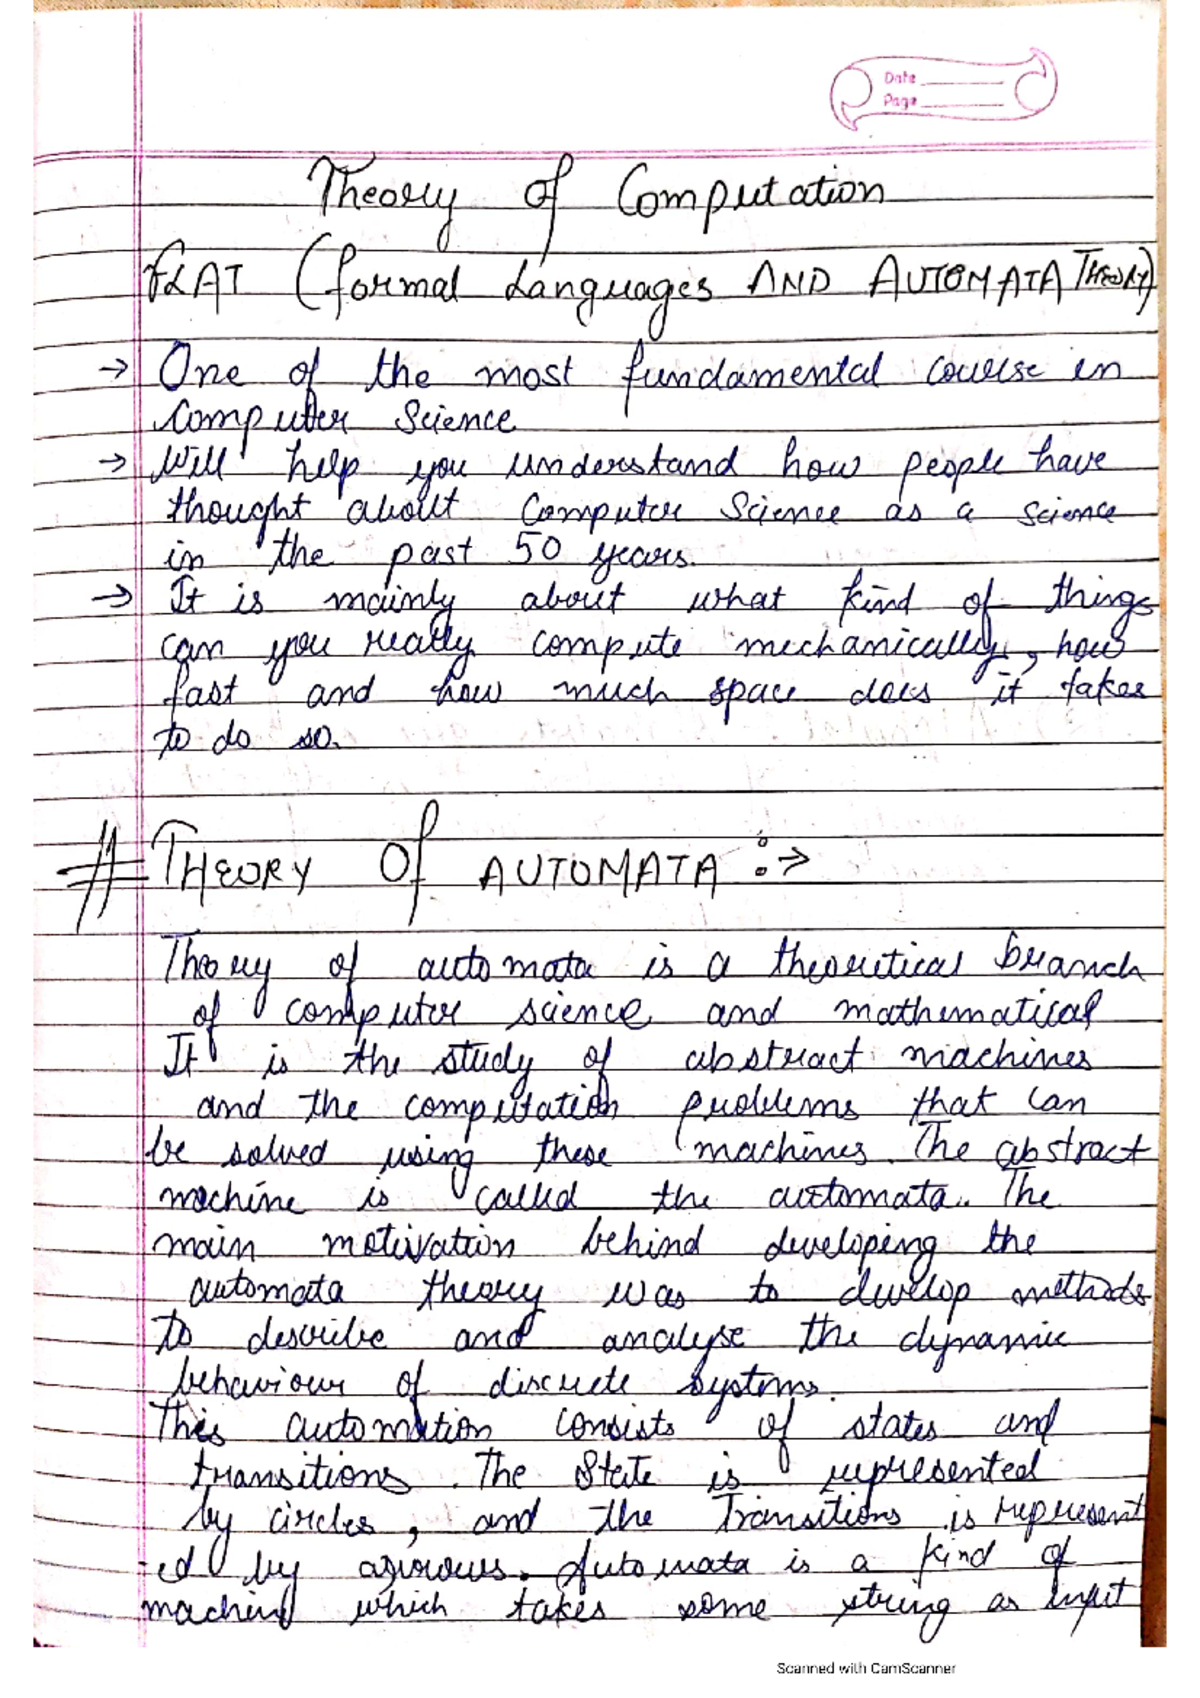 Date
Page
Theory of Computation
FLAT (formal Languages AND AUTOMATA THEORY)
→ One of the most fundamental course in
Computer Science
→ Will help you understand how people have
thought about Computer Science as a science
in the past 50 years.
→ It is mainly about what kind of things
can you really compute mechanically, how
fast and how much space does it takes
to do so.
# THEORY Of AUTOMATA :→
Theory of automata is a theoretical branch
of computer science and mathematical
It is the study of abstract machines
and the computation problems that can
be solved using these machines. The abstract
machine is called the automata. The
main motivation behind developing the
automata theory was to develop methods
to describe and analyse the dynamic
behaviour of discrete systems.
This automation consists of states and
transitions. The State is represented
by circles, and the Transitions is represent
-ed by arrows. Automata is a kind of
machine which takes some string as input
Scanned with CamScanner